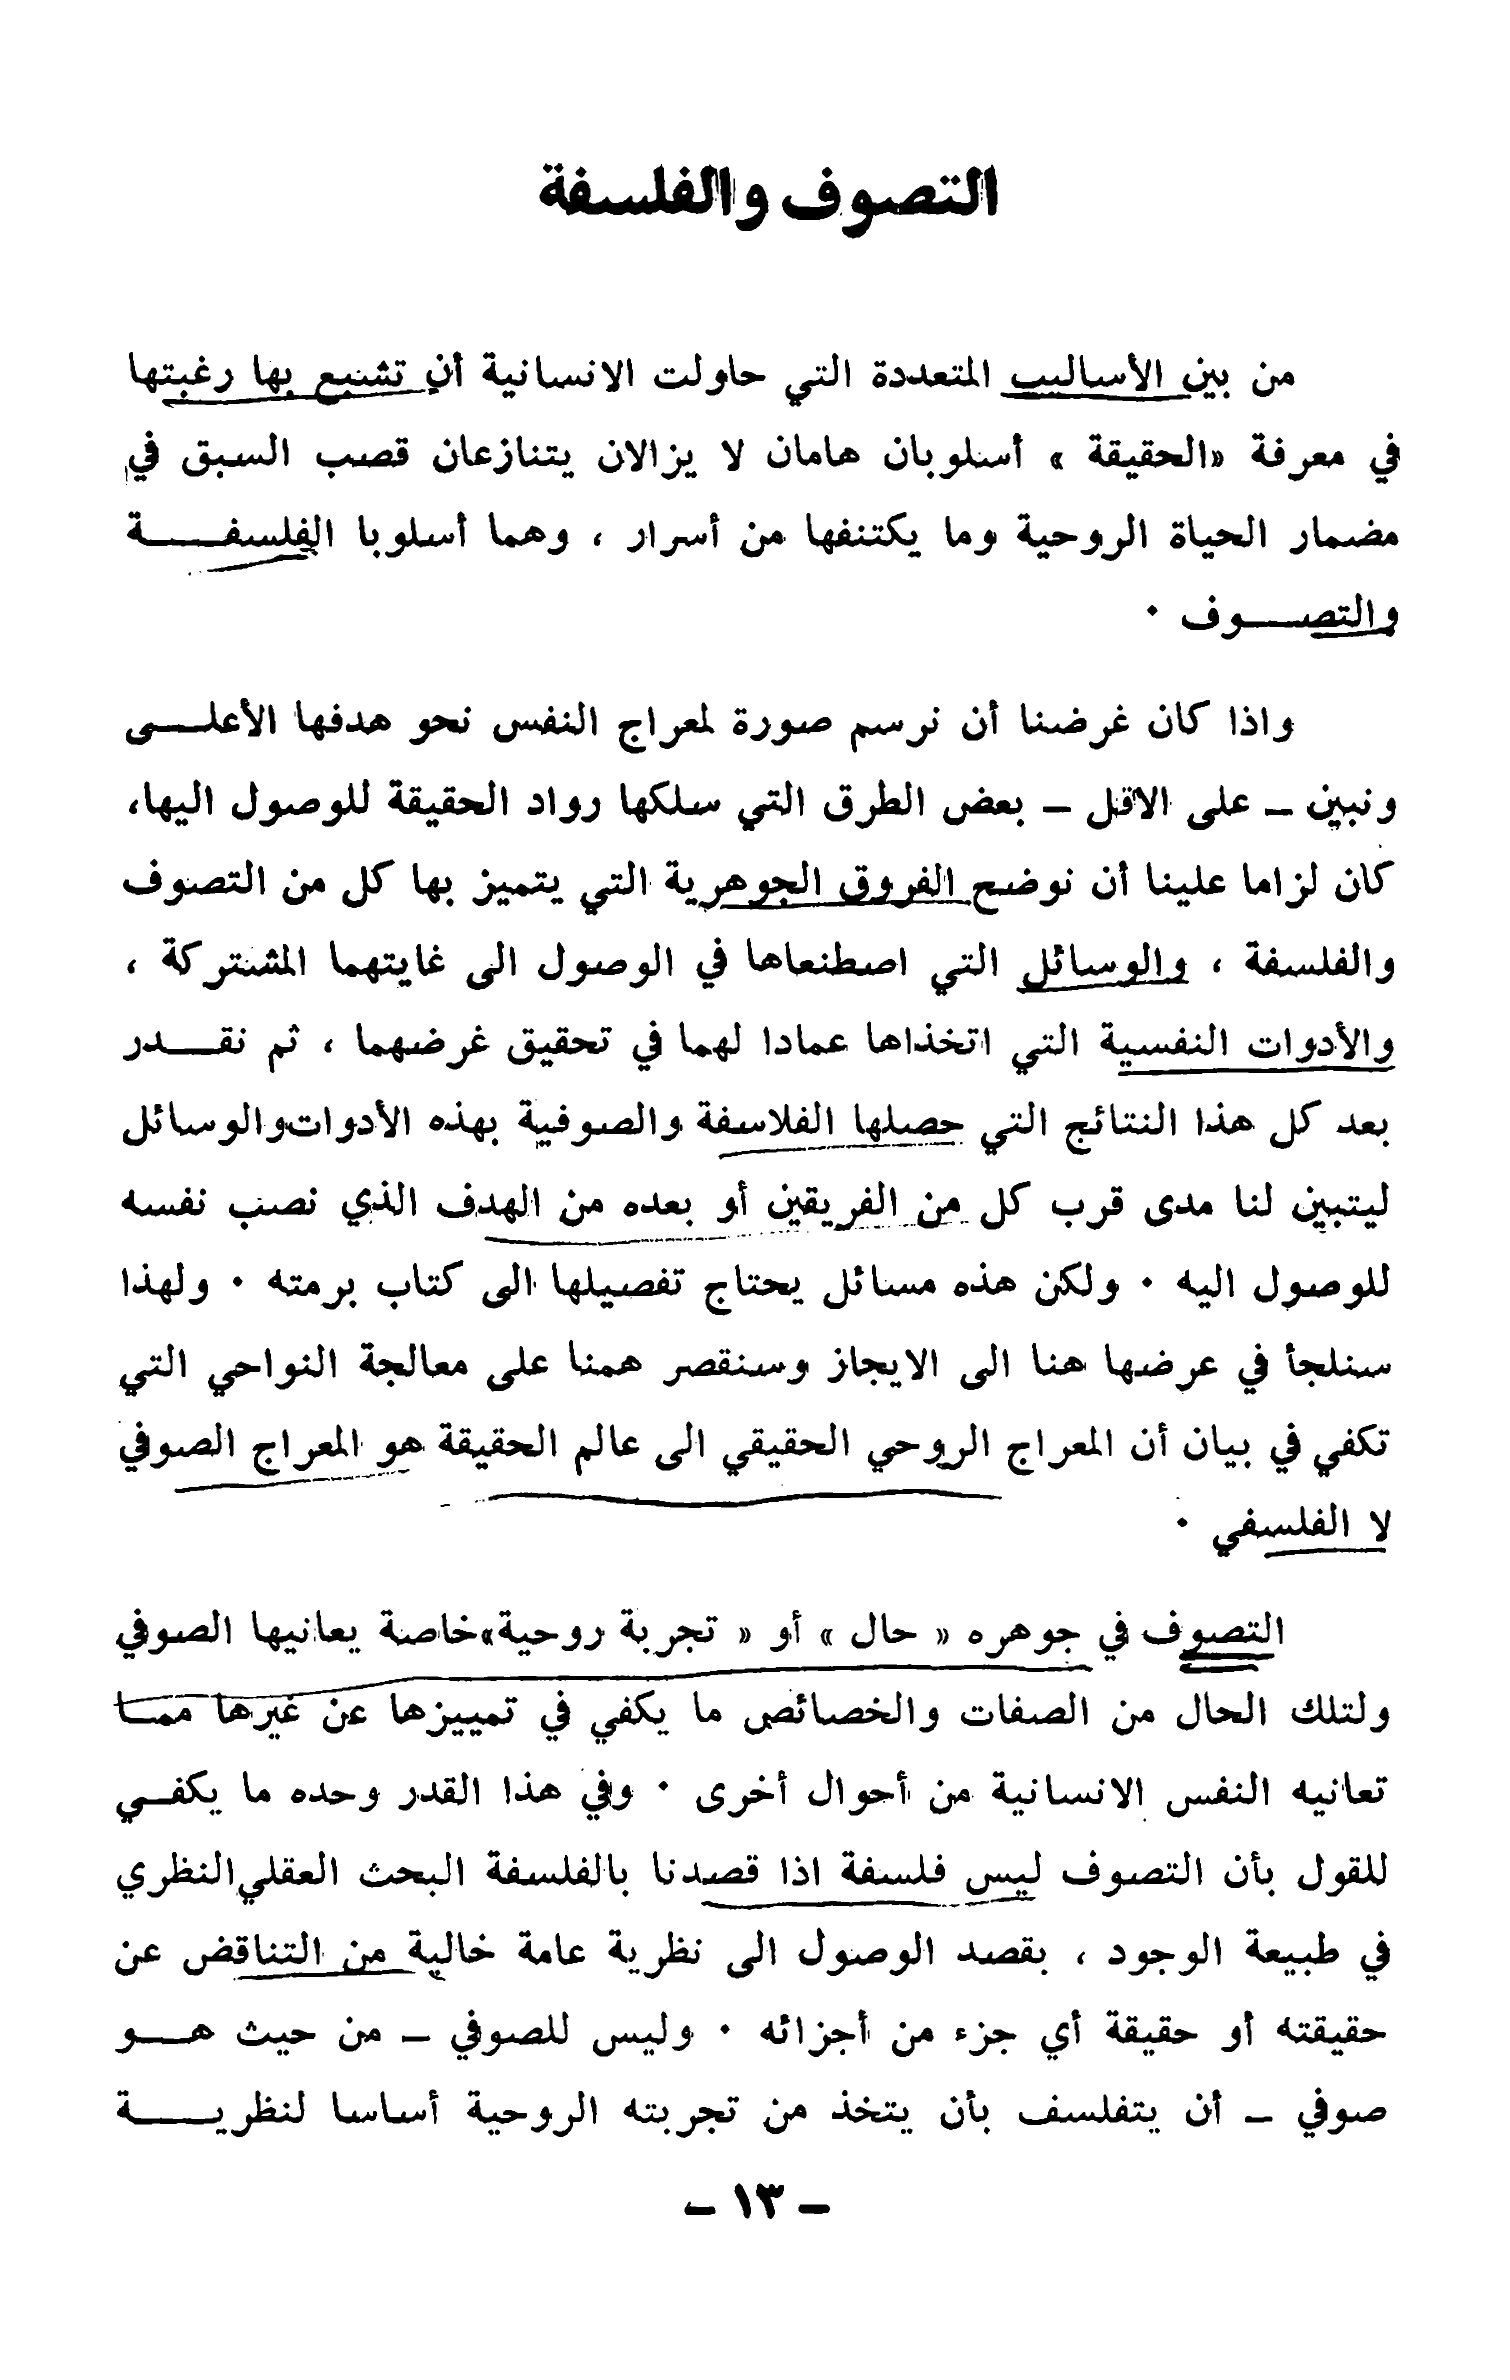 التصوف والفلسفة
من بين الأساليب المتعددة التي حاولت الانسانية أن تشبع بها رغبتها
في معرفة «الحقيقة » أسلوبان هامان لا يزالان يتنازعان قصب السبق في
مضمار الحياة الروحية وما يكتنفها من أسرار ، وهما أسلوبا الفلسفـــة
والتصـــوف ٠
واذا كان غرضنا أن نرسم صورة لمعراج النفس نحو هدفها الأعلـــى
ونبين – على الاقل – بعض الطرق التي سلكها رواد الحقيقة للوصول اليها،
كان لزاما علينا أن نوضح الفروق الجوهرية التي يتميز بها كل من التصوف
والفلسفة ، والوسائل التي اصطنعاها في الوصول الى غايتهما المشتركة ،
والأدوات النفسية التي اتخذاها عمادا لهما في تحقيق غرضهما ، ثم نقـــدر
بعد كل هذا النتائج التي حصلها الفلاسفة والصوفية بهذه الأدوات والوسائل
ليتبين لنا مدى قرب كل من الفريقين أو بعده من الهدف الذي نصب نفسه
للوصول اليه ٠ ولكن هذه مسائل يحتاج تفصيلها الى كتاب برمته ٠ ولهذا
سنلجأ في عرضها هنا الى الايجاز وسنقصر همنا على معالجة النواحي التي
تكفي في بيان أن المعراج الروحي الحقيقي الى عالم الحقيقة هو المعراج الصوفي
لا الفلسفي ٠
التصوف في جوهره « حال » أو « تجربة روحية» خاصة يعانيها الصوفي
ولتلك الحال من الصفات والخصائص ما يكفي في تمييزها عن غيرها ممـــا
تعانيه النفس الانسانية من أحوال أخرى ٠ وفي هذا القدر وحده ما يكفـــي
للقول بأن التصوف ليس فلسفة اذا قصدنا بالفلسفة البحث العقلي النظري
في طبيعة الوجود ، بقصد الوصول الى نظرية عامة خالية من التناقض عن
حقيقته أو حقيقة أي جزء من أجزائه ٠ وليس للصوفي – من حيث هـــو
صوفي – أن يتفلسف بأن يتخذ من تجربته الروحية أساسا لنظريـــة
– ١٣ –